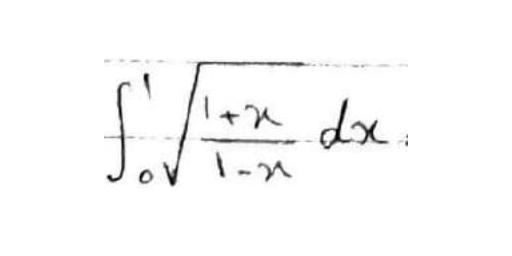 ∫₀¹ √((1+x)/(1-x)) dx